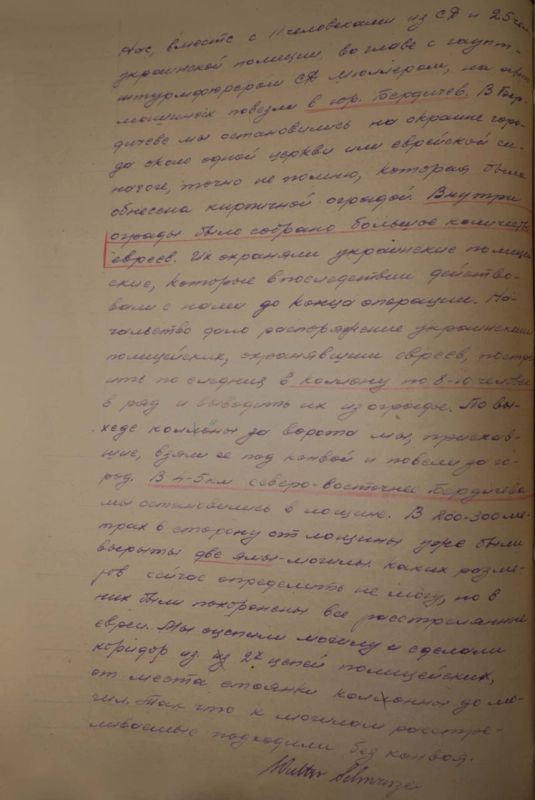 Нас, вместе с 11 человеками из СД и 25 чел
украинской полиции, во главе с гаупт-
штурмфюрером СД Мюллером, на авто
машинах повезли в гор. Бердичев. В Бер-
дичеве мы остановились на окраине горо-
да около одной церкви или еврейской си-
нагоге, точно не помню, которая была
обнесена кирпичной оградой. Внутри
ограды было собрано большое количество
евреев. Их охраняли украинские полицей
ские, которые впоследствии действо-
вали с нами до конца операции. На-
чальство дало распоряжение украинским
полицейских, охранявшим евреев, постро
ить последних в колонну по 8-10 человек
в ряд и выводить их из ограды. По вы-
ходе колонны за ворота мы, приехав-
шие, взяли ее под конвой и повели за го-
род. В 4-5 км северо-восточнее Бердичева
мы остановились в лощине. В 200-300 ме-
трах в сторону от лощины уже были
вырыты две ямы-могилы. Каких разме-
ров сейчас определить не могу, но в
них были похоронены все расстрелянные
евреи. Мы оцепили могилу и сделали
коридор из, из 2х цепей полицейских,
от места стоянки колонны до мо-
гил. Так что к могилам расстре-
ливаемые подходили без конвоя.